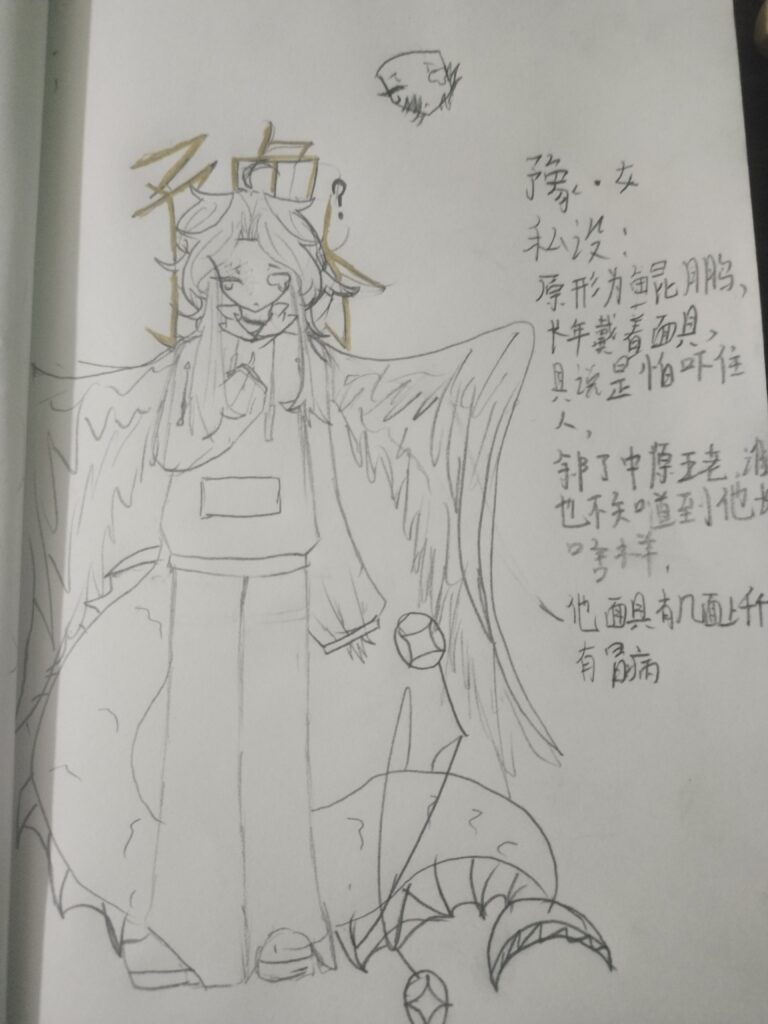 豫
?
豫·女
私设：
原形为鲲鹏，
长年戴着面具，
具说是怕吓住
人，
除了中原五老，谁
也不知道到他长
啥样，
他面具有几面上千
有胃病